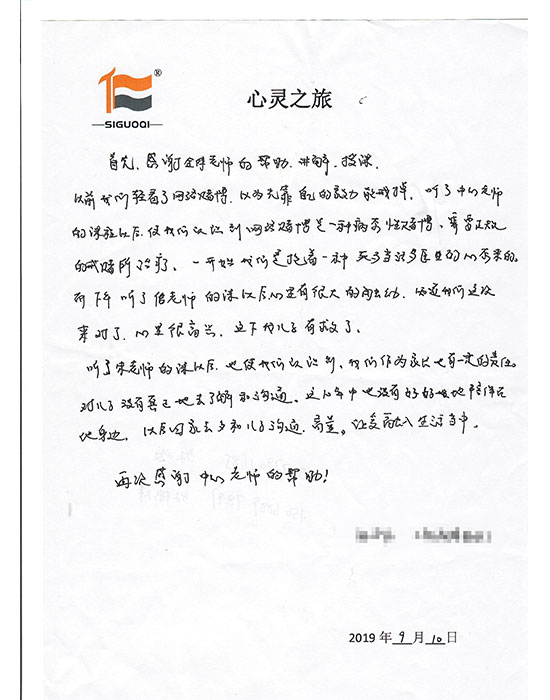 ®
SIGUOQI
心灵之旅
首先,感谢全体老师的帮助、讲解、授课.
以前我们轻看了网络赌博,以为光靠自己的毅力能戒掉,听了中心老师
的课程以后使我们认识到网络赌博是一种病态性赌博、需要正规
的戒赌所治疗,一开始我们是抱着一种死马当活马医的心态来的。
而下午听了老师的课以后心里有很大的
来对了,心里很高兴,这下我儿子有救了。
听了宋老师的课以后,也使我们认识到,我们作为家长也有一定的责任。
对儿子没有真正地去了解和沟通。这几年中也没有好好地陪伴在
他身边,以后回家去多和儿子沟通、让爱融入生活当中。
再次感谢中心老师的帮助!
2019年9月10日